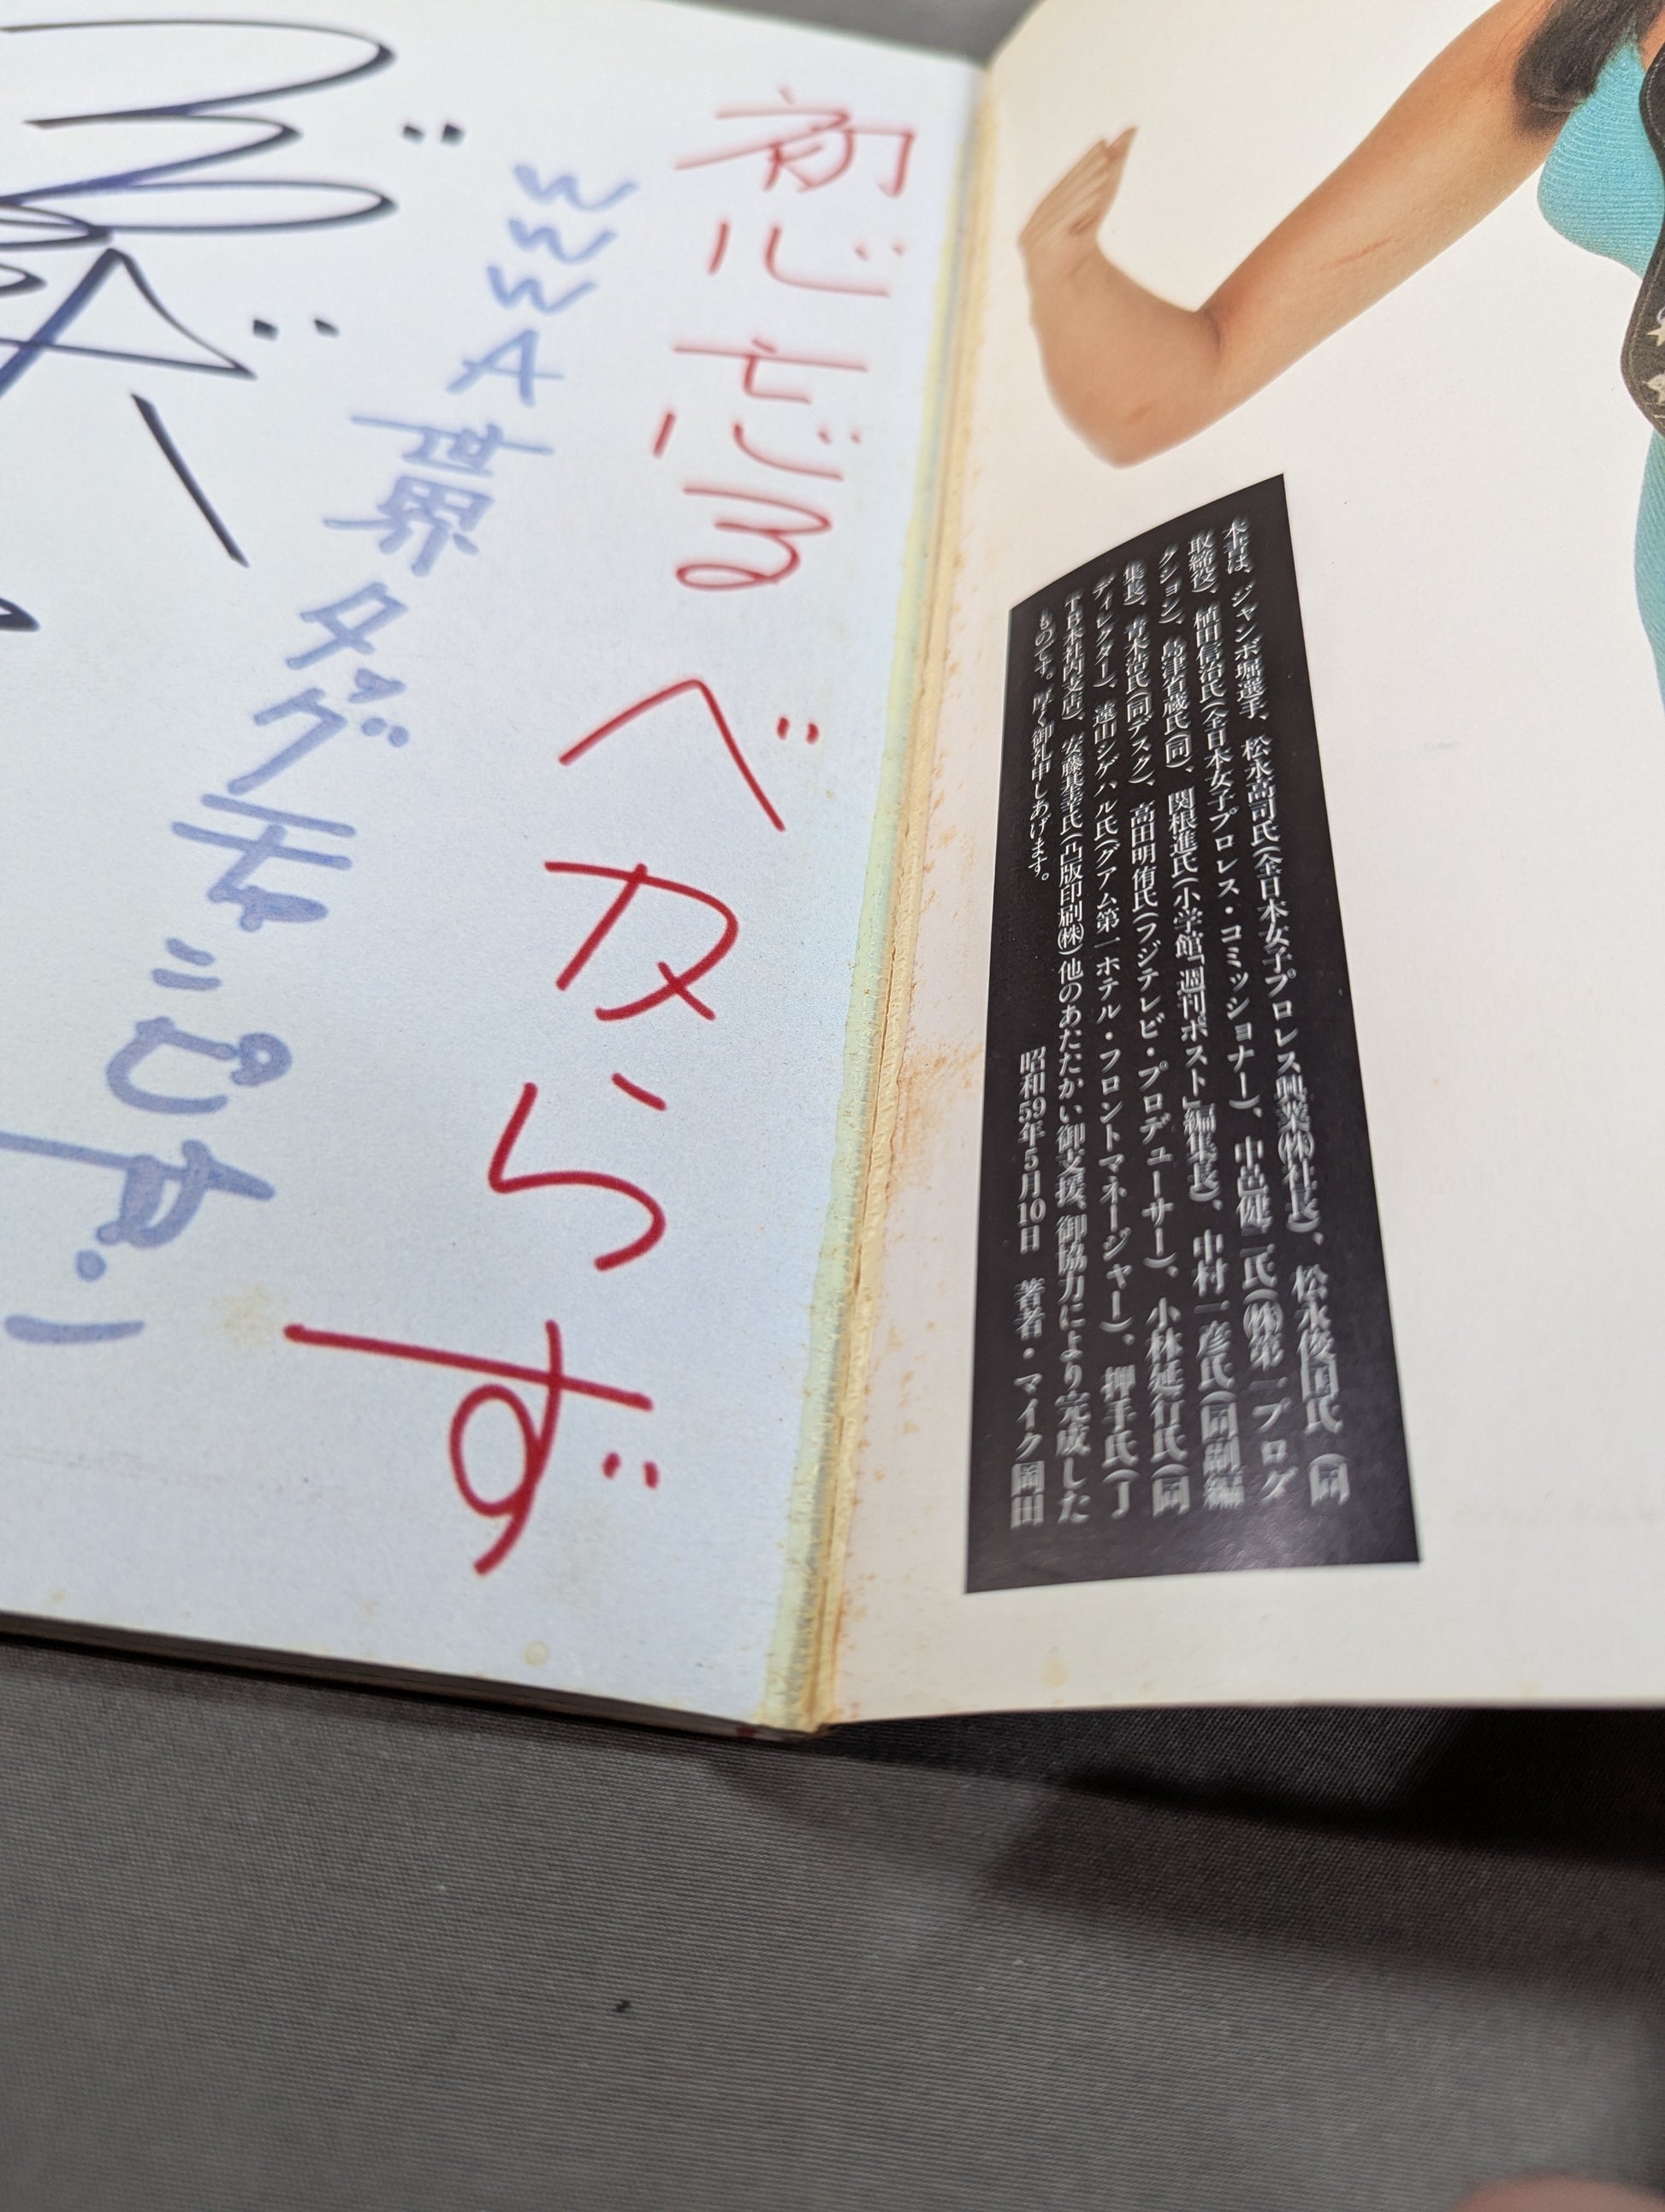 本書は、ジャンボ堀選手、松永高司氏(全日本女子プロレス興業㈱社長)、松永俊国氏(同
取締役)、植田信治氏(全日本女子プロレス・コミッショナー)、中邑健二氏(㈱第一プログ
クション)、島津省蔵氏(同)、関根進氏(小学館「週刊ポスト」編集長)、中村一彦氏(同副編
集長)、青木浩氏(同デスク)、高田明侑氏(フジテレビ・プロデューサー)、小林延行氏(同
ディレクター)、遠山シゲハル氏(グアム第一ホテル・フロントマネージャー)、押手氏(J
TB本社内支店)、安藤基幸氏(凸版印刷㈱)他のあたたかい御支援、御協力により完成した
ものです。厚く御礼申しあげます。
昭和59年5月10日 著者・マイク岡田
初心忘るべカらず
WWWA世界タッグチャンピオン